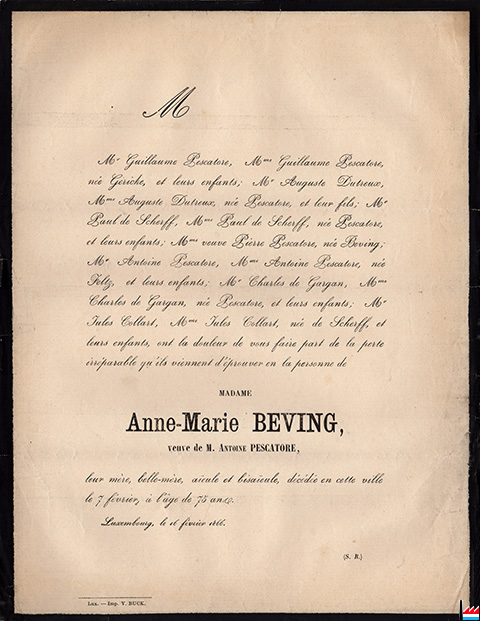 M
Mr Guillaume Pescatore, Mme Guillaume Pescatore,
née Géricke, et leurs enfants; Mr Auguste Dutreux,
Mme Auguste Dutreux, née Pescatore, et leur fils; Mr
Paul de Scherff, Mme Paul de Scherff, née Pescatore,
et leurs enfants; Mme veuve Pierre Pescatore, née Beving;
Mr Antoine Pescatore, Mme Antoine Pescatore, née
Feltz, et leurs enfants; Mr Charles de Gargan, Mme
Charles de Gargan, née Pescatore, et leurs enfants; Mr
Jules Collart, Mme Jules Collart, née de Scherff, et
leurs enfants, ont la douleur de vous faire part de la perte
irréparable qu'ils viennent d'éprouver en la personne de
MADAME
Anne-Marie BEVING,
veuve de M. Antoine PESCATORE,
leur mère, belle-mère, aïeule et bisaïeule, décédée en cette ville
le 7 février, à l'âge de 75 ans.
Luxembourg, le 16 février 1866.
(S. R.)
Lux. — Imp. V. BUCK.